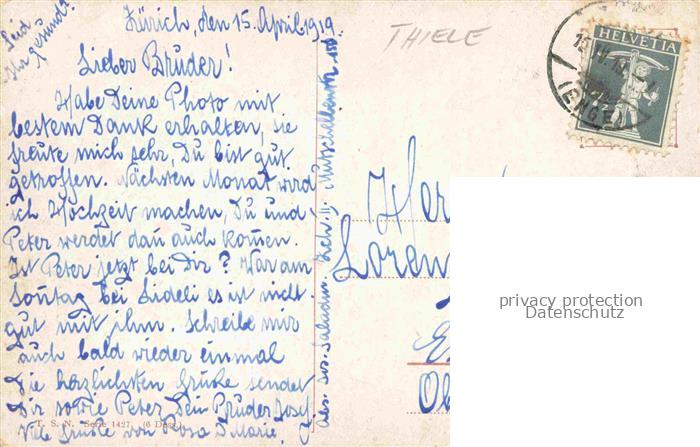 Seid
Ihr gesund?
Zürich, den 15. April 1919.
THIELE
HELVETIA
(ENGE)
Lieber Bruder!
Habe Deine Photo mit
bestem Dank erhalten, sie
freute mich sehr, Du bist gut
getroffen. Nächsten Monat wird
ich Hochzeit machen, Du und
Peter werdet dan auch komen.
Ist Peter jetzt bei Dir? War am
Sontag bei Sideli es ist nicht
gut mit ihm. Schreibe mir
auch bald wieder einmal
Die herzlichsten Grüße sendet
Dir sowie Peter Dein Bruder Josef
Viele Grüße von Rosa & Marie.
T. S. N. Serie 1427. (6 Dess.)
Abs. Jos. Zch. II Mutschellenstr.
Her
Loren
Ob
privacy protection
Datenschutz